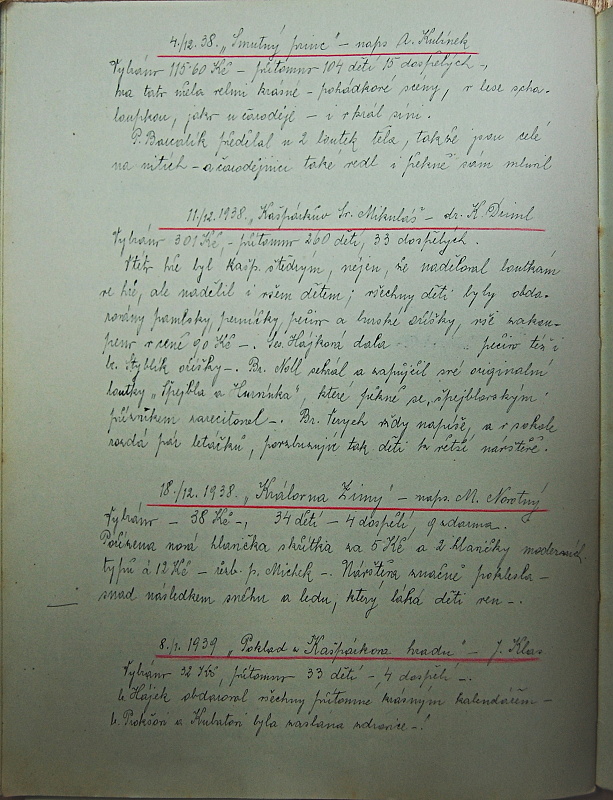 4./12. 38. „Smutný princ" – naps A. Kubínek
Vybráno 115·60 Kč – přítomno 104 dětí, 15 dospělých –,
hra tato měla velmi krásné – pohádkové sceny, v lese scha-
loupkou, jako u čaroděje – i v král. síni.
P. Boučalík předělal u 2 loutek těla, takže jsou celé
na nitích – a čarodějnici také vedl i pěkně sám mluvil
11./12. 1938. „Kašpárkův Sv. Mikuláš – dr. K. Deiml
Vybráno 301 Kč, – přítomno 260 dětí, 33 dospělých.
V této hře byl Kašp. štědrým, nejen, že naděloval loutkám
ve hře, ale nadělil i všem dětem; všechny děti byly obda-
rovány pamlsky, perníčky, pečivo a burské oříšky, vše zakou-
peno v ceně 90 Kč –. Ses. Hájková dala pečivo též i
br. Styblík oříšky –. Br. Noll sehrál a zapůjčil své originalní
loutky „Spejbla a Hurvínka", které pěkně se „spejblovským"
přízvukem zarecitoval –. Br. vždy napíše, a v sokole
rozdá pár letáčků, povzbuzuje tak děti ku větší návštěvě.
18./12. 1938. „Královna Zima" – naps. M. Novotný
Vybráno – 38 Kč –, 34 dětí – 4 dospělí, 9 zdarma.
Pořízena nová hlavička skřítka za 5 Kč a 2 hlavičky moderních
typů á 12 Kč – řezb. p. Michek –. Návštěva značně poklesla –
snad následkem sněhu a ledu, který láká děti ven –.
8./1. 1939 „Poklad v Kašpárkově hradu" – J. Klas
Vybráno 32 Kč, přítomno 33 dětí –, 4 dospělí –.
b. Hájek obdaroval všechny přítomné krásným kalendářem –
b. Prokšovi a Kubátovi byla zaslána zdravice –!